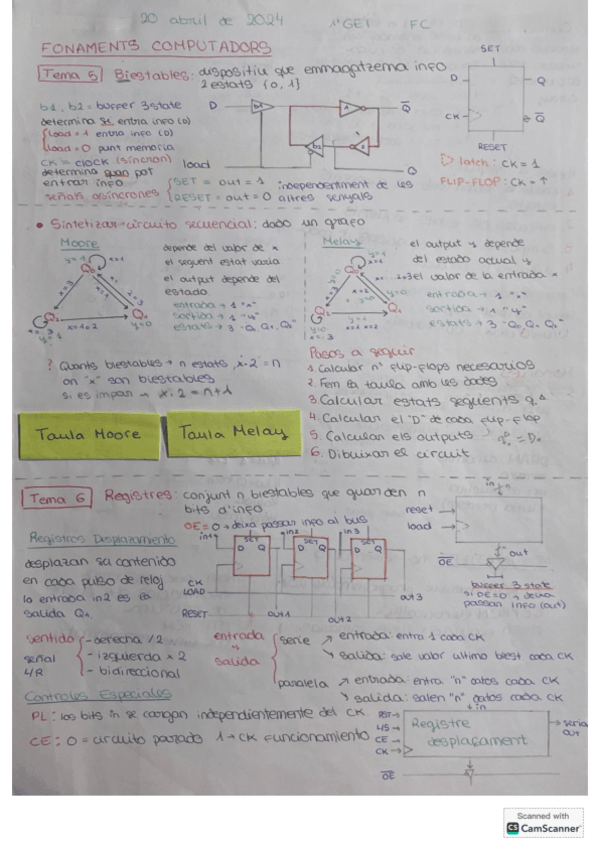 20 abril de 2024 1ºGEI IFC
FONAMENTS COMPUTADORS
Tema 5 Biestables: dispositiu que emmagatzema info
2 estats {0, 1}
SET
D Q
CK Q
RESET
b1, b2 = buffer 3 state
determina si entra info (D)
load = 1 entra info (D)
load = 0 punt memoria
CK = clock (síncron)
determina quan pot
entrar info
D b1 1 Q
b2 2
load Q
señals asíncrones SET = out = 1 independentment de les
RESET = out = 0 altres senyals
latch: CK = 1
FLIP-FLOP: CK = ↑
• Sintetizar circuito secuencial: dado un grafo
Moore
depende del valor de x
el seguent estat varia
el output depende del
estado
entrada → 1 "x"
sortida → 1 "y"
estats → 3 "Q0 Q1 Q2"
Melay
el output y depende
del estado actual y
el valor de la entrada x
entrada → 1 "x"
sortida → 1 "y"
estats → 3 "Q0 Q1 Q2"
? Quants biestables → n estats, x·2 = n
on "x" son biestables
si es impar → x·2 = n+1
Pasos a seguir
1. Calcular nº flip-flops necesarios
2. Fem la taula amb les dades
3. Calcular estats següents
4. Calcular el "D" de cada flip-flop
5. Calcular els outputs
6. Dibuixar el circuit
Taula Moore
Taula Melay
Tema 6 Registres: conjunt n biestables que guarden n
bits d'info
OE = 0 → deixa passar info al bus
Registros Desplazamiento
desplazan su contenido
en cada pulso de reloj
la entrada in2 es la
salida Q1
in1 in2 in3
SET SET SET
D Q D Q D Q
CK
LOAD
RESET out1 out2 out3
in
reset
load
OE out
buffer 3 state
si OE=0 → deixa
passar info (out)
sentido - derecha /2
señal - izquierda x2
L/R - bidireccional
entrada
y
salida
serie entrada: entra 1 cada CK
salida: sale valor ultimo biest cada CK
paralela entrada: entra "n" datos cada CK
salida: salen "n" datos cada CK
Controles Especiales
PL: los bits in se cargan independientemente del CK
CE: 0 = circuito parado 1 → CK funcionamiento
in
RST
L/S
CE
CK
Registre
desplaçament
serial
out
OE
Scanned with
CS CamScanner